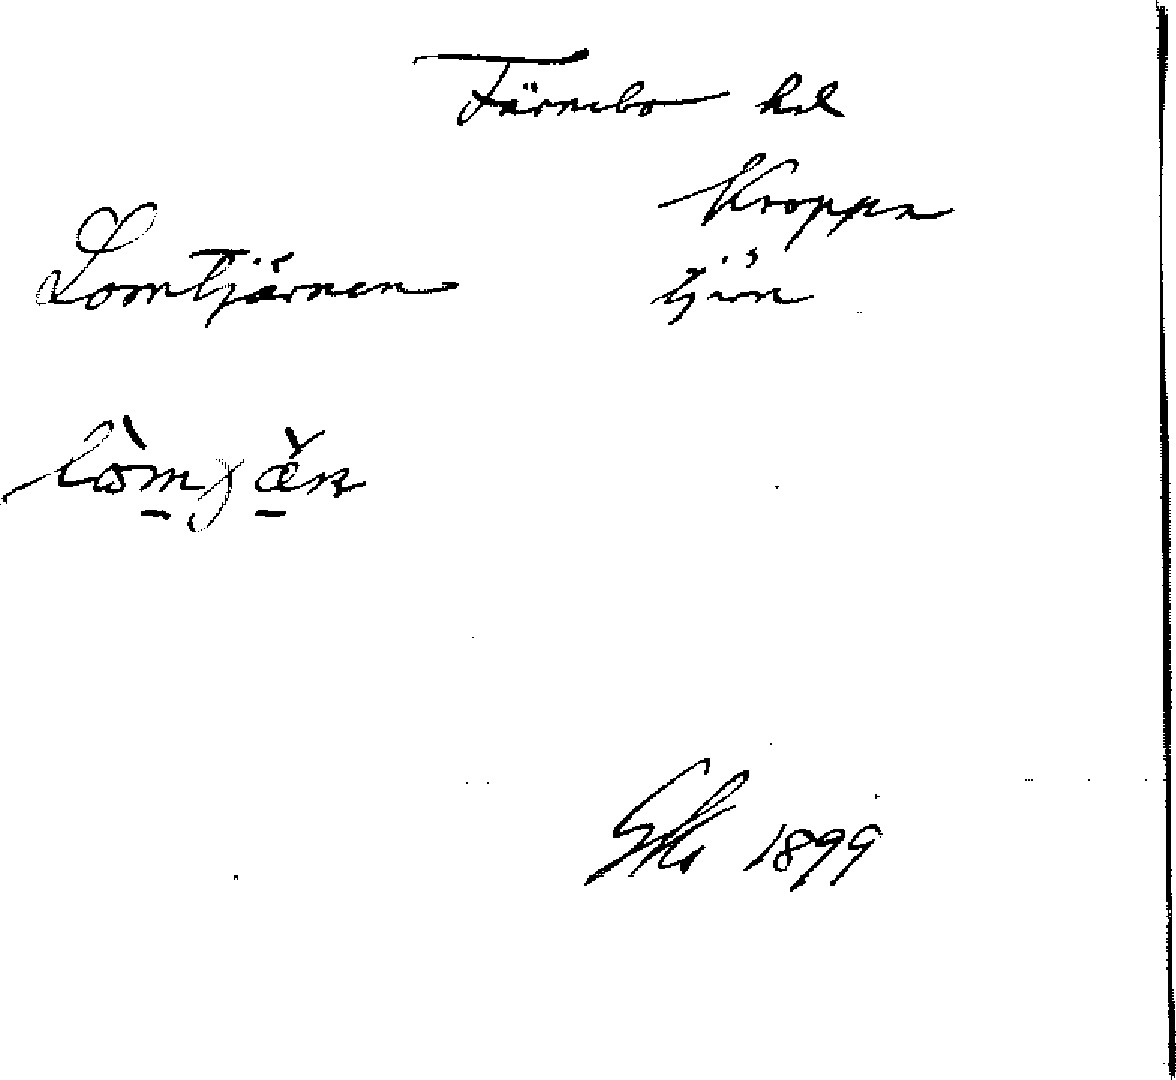 Färnebo hd
Kroppa
Lomtjärnen tjärn
lòmjæ̀n
1899